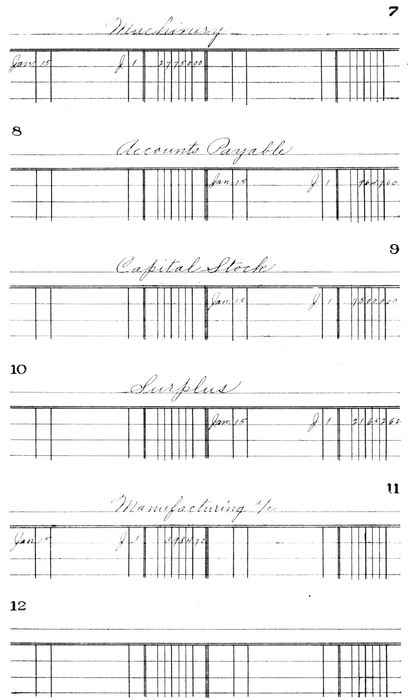 7
Machinery
Jan. 15 J 1 2775000
8
Accounts Payable
Jan. 15 J 1
9
Capital Stock
Jan. 15 J 1 7500000
10
Surplus
Jan. 15 J 1 2165262
11
Manufacturing a/c
Jan. 15 J 1
12